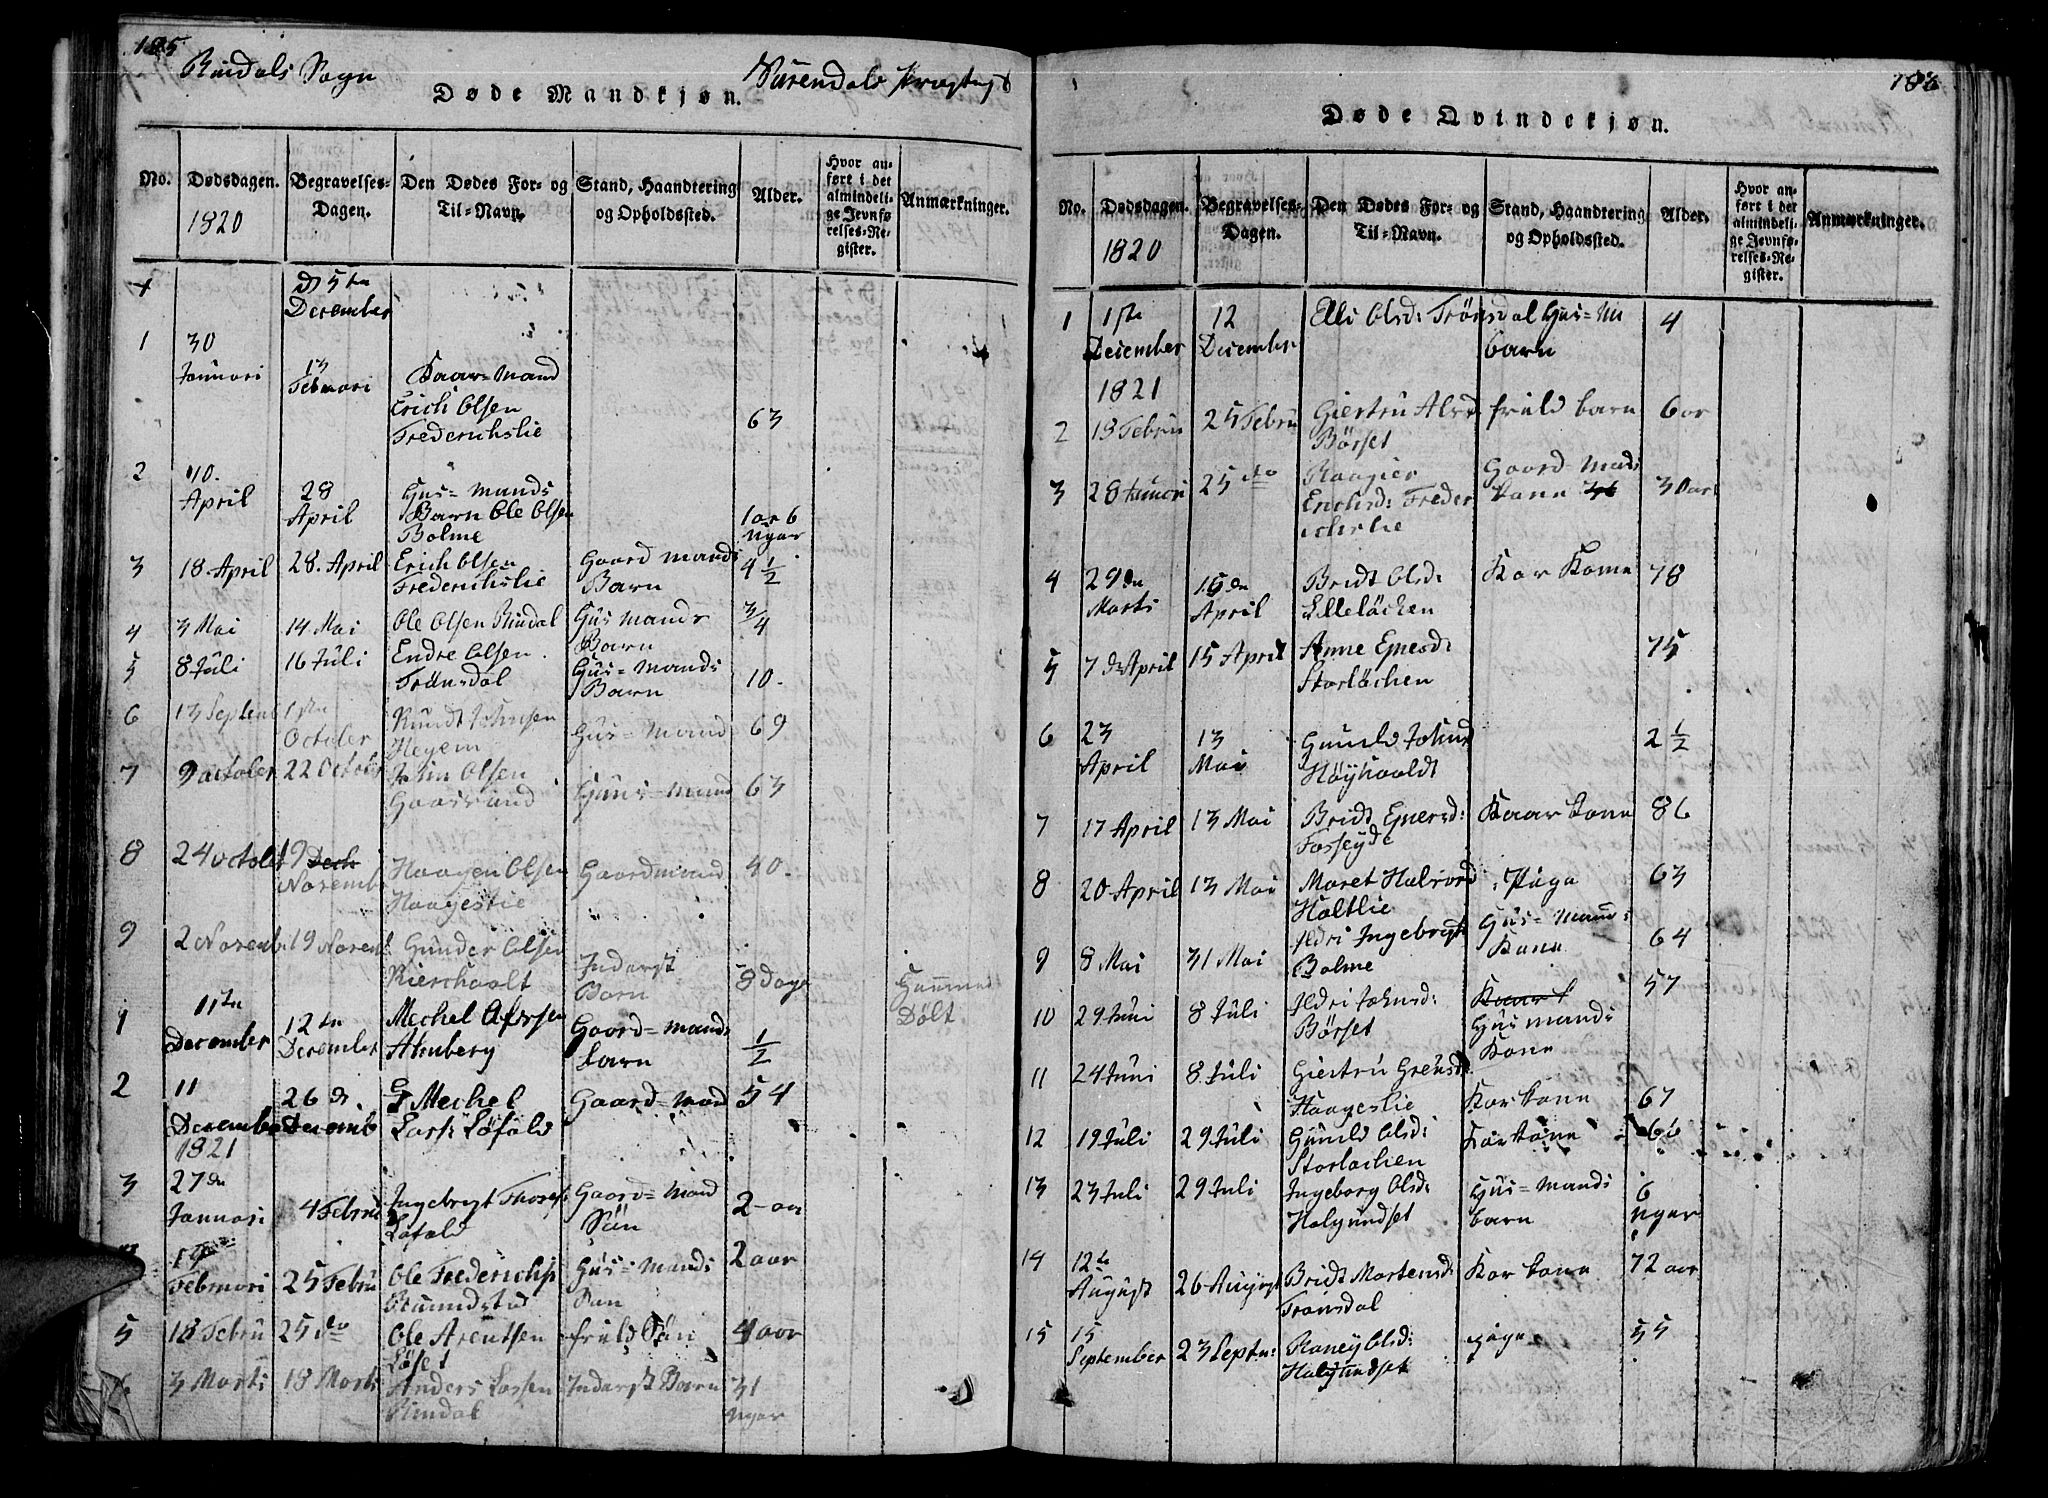 185
Rindals Sogn
Surendals Præstegjd
Døde Mandkjøn.
No.
Dødsdagen.
1820
Begravelses-
Dagen.
Den Dødes For- og
Til-Navn.
Stand, Haandtering
og Opholdssted.
Alder.
Hvor an-
ført i det
almindeli-
ge Jevnfø
relses-Re-
gister.
Anmærkninger.
d 5te
December
1 30 Januari 13 Februari Kaar=Mand
Erich Olsen
Frederichslie 63
2 10. April 28 April Huus=mands
Barn Ole Olsen
Bolme 1 or 6
Uger
3 18 April 28. April Erich Olsen
Frederichslie Gaard mands
Barn 4 1/2
4 3 Mai 14 Mai Ole Olsen Rindal Hus mands
Barn 3/4
5 8 Juli 16 Juli Endre Olsen
Trönsdal Hus=mands
Barn 10.
6 13 Septemb 1ste
October Knudt Johnsen
Heyem Hus=mand 69
7 9 october 22 October John Olsen
Gaasvand Huus=mand 63
8 24 octobr 19 Dech
Novemb Haagen Olsen
Haagestie Gaardmand 40.
9 2 Novemb 19 Novemb Gunder Olsen
Kierchholt Inderst
Barn 8 Dage Hiemme
Dölt
1 11te
December 12te
December Mechel
Almberg Gaord=mands
barn 1/2
2 11
December 26 d.
Decemb Mechel
Lars: Löfald Gaard=mand 54
1821
3 27de
Januari 4 Februa Ingebrygt Thores
Løfald Gaord=Mand
Sön 2 aar
Februari 25 Febru Ole Frederichs
Hus=Mands
Søn 2 aar
5 18 Febru 25 do Ole Arentsen
Löset friild Søn 4 aar
3 Marts 18 Marts Anders Larsen
Rindal Inderst Barn 31
Uger
186
Døde Qvindekjøn.
No.
Dødsdagen.
1820
Begravelses-
Dagen.
Den Dødes For- og
Til-Navn.
Stand, Haandtering
og Opholdssted.
Alder.
Hvor an-
ført i det
almindeli-
ge Jevnfø-
relses-Re-
gister.
Anmærkninger.
1 1ste
December 12
December Elli Olsd: Trönsdal Hus=M
barn 4
1821
2 18 Febru 25 Febru Giertru Alsd
Börset friild barn 6 or
3 28 Januari 25 do
Erichsd: Freder
ichslie Gaord=Mads
kone 30 aar
4 29de
Marts 15de
April Bridt Olsd:
Lilleløchen Kor Kone 78
5 7 d April 15 April Anne Ejnesd:
Storløchen 75
6 23
April 13
Mai Gunild Johns
Höyhaaldt 2 1/2
7 17 April 13 Mai Bridt Ejnersd:
Forseyde Kaar kone 86
8 20 April 13 Mai Maret Halvord
Holtlie Piga 63
9 8 Mai 31 Mai Ildri Ingebrygt
Bolme Hus=Mands
Kone 64
10 29 Juni 8 Juli Ildri Johnsd:
Børset Kaar k
Husmands
Kone 57
11 24 Juni 8 Juli Giertru
Haageslie Kor kone 67
12 19 Juli 29 Juli Gunild Olsd:
Storløchen Kor kone
13 23 Juli 29 Juli Ingeborg Olsd:
Halgundset Hus=Mands
barn 6
Uger
14 12te
August 26 August Bridt Mortensd:
Trönsdal Kor kone 72 aar
15 15
September 23 Septm: Raney Olsd:
Halgundset piga 55